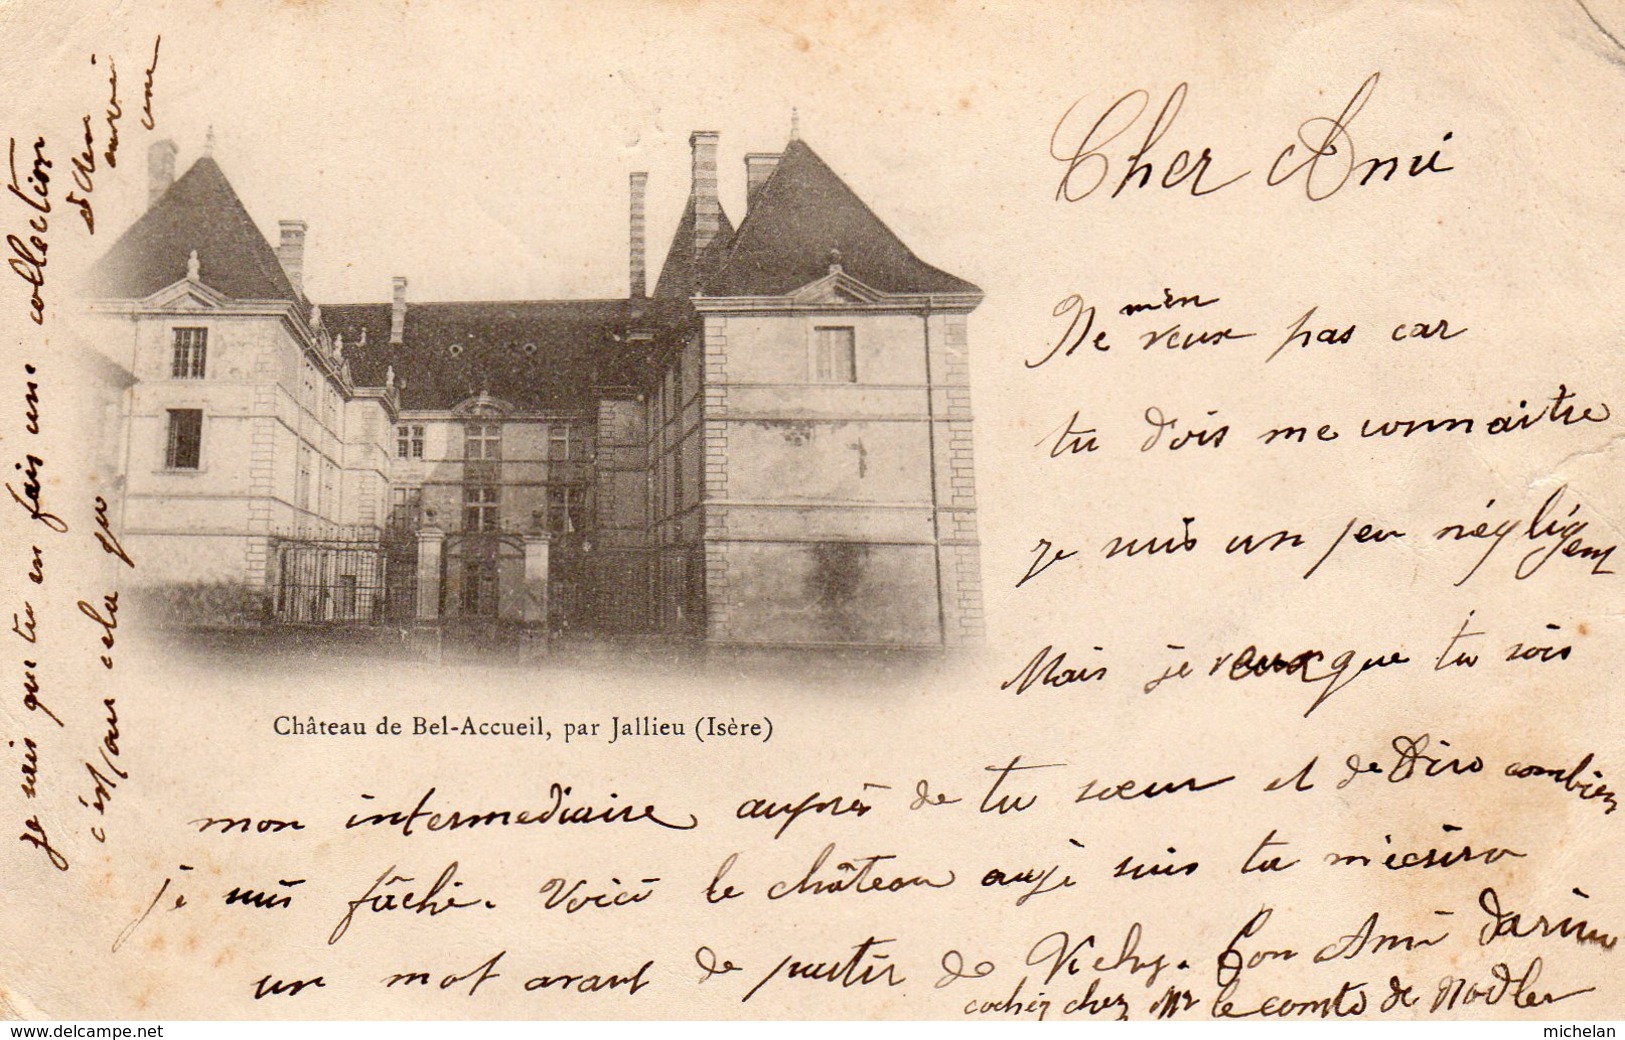 Cher Ami
Ne m'en veux pas car
tu dois me connaitre
je suis un peu négligent
Mais je veux que tu sois
mon intermediaire auprès de tu sœur et de Dire combien
je suis fâché. Voici le château auje suis tu m'écrira
un mot avant de partir de Vichy. Ton Ami
cocher chez Mr le comte de
je sais que tu en fais une collection
c'est pour cela que
je t'en
envoi
une
Château de Bel-Accueil, par Jallieu (Isère)
www.delcampe.net
michelan